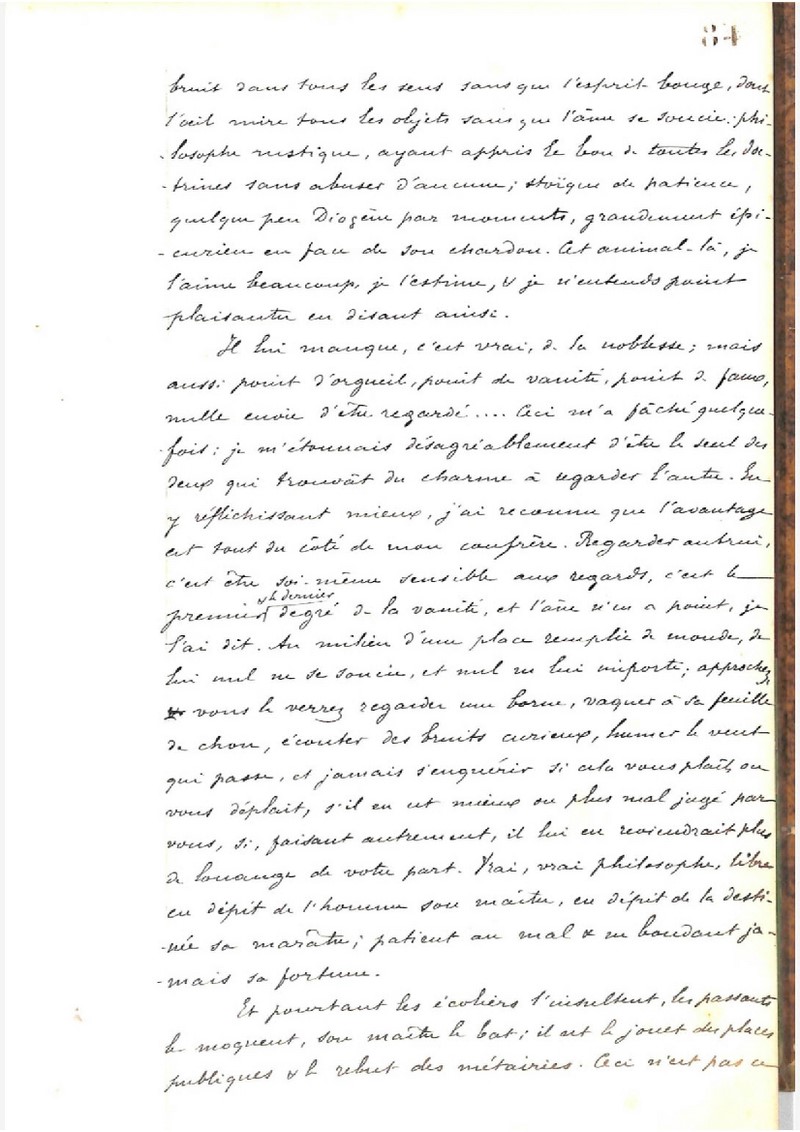 84
bruit dans tous les sens sans que l'esprit bouge, dont
l'œil mire tous les objets sans que l'âme se soucie: phi-
-losophe rustique, ayant appris le bon de toutes les doc-
-trines sans abuser d'aucune; stoïque de patience,
quelque peu Diogène par moments, grandement épi-
-curien en face de son chardon. Cet animal-là, je
l'aime beaucoup, je l'estime, & je n'entends point
plaisanter en disant ainsi.
Il lui manque, c'est vrai, de la noblesse; mais
aussi point d'orgueil, point de vanité, point de faux,
nulle envie d'être regardé.... Ceci m'a fâché quelque-
-fois: je m'étonnais désagréablement d'être le seul des
deux qui trouvât du charme à regarder l'autre. En
y réfléchissant mieux, j'ai reconnu que l'avantage
est tout du côté de mon confrère. Regarder autrui,
c'est être soi-même sensible aux regards, c'est le
& le dernier
premier degré de la vanité, et l'âne n'en a point, je
l'ai dit. Au milieu d'une place remplie de monde, de
lui nul ne se soucie, et nul ne lui importe; approchez,
vous le verrez regarder une borne, vaquer à sa feuille
de chou, écouter des bruits curieux, humer le vent
qui passe, et jamais s'enquérir si cela vous plaît, ou
vous déplait, s'il en est mieux ou plus mal jugé par
vous, si, faisant autrement, il lui en reviendrait plus
de louange de votre part. Vrai, vrai philosophe, libre
en dépit de l'homme son maître, en dépit de la desti-
-née sa marâtre; patient au mal & ne boudant ja-
-mais sa fortune.
Et pourtant les écoliers l'insultent, les passants
le moquent, son maître le bat; il est le jouet des places
publiques & le rebut des métairies. Ceci n'est pas ce